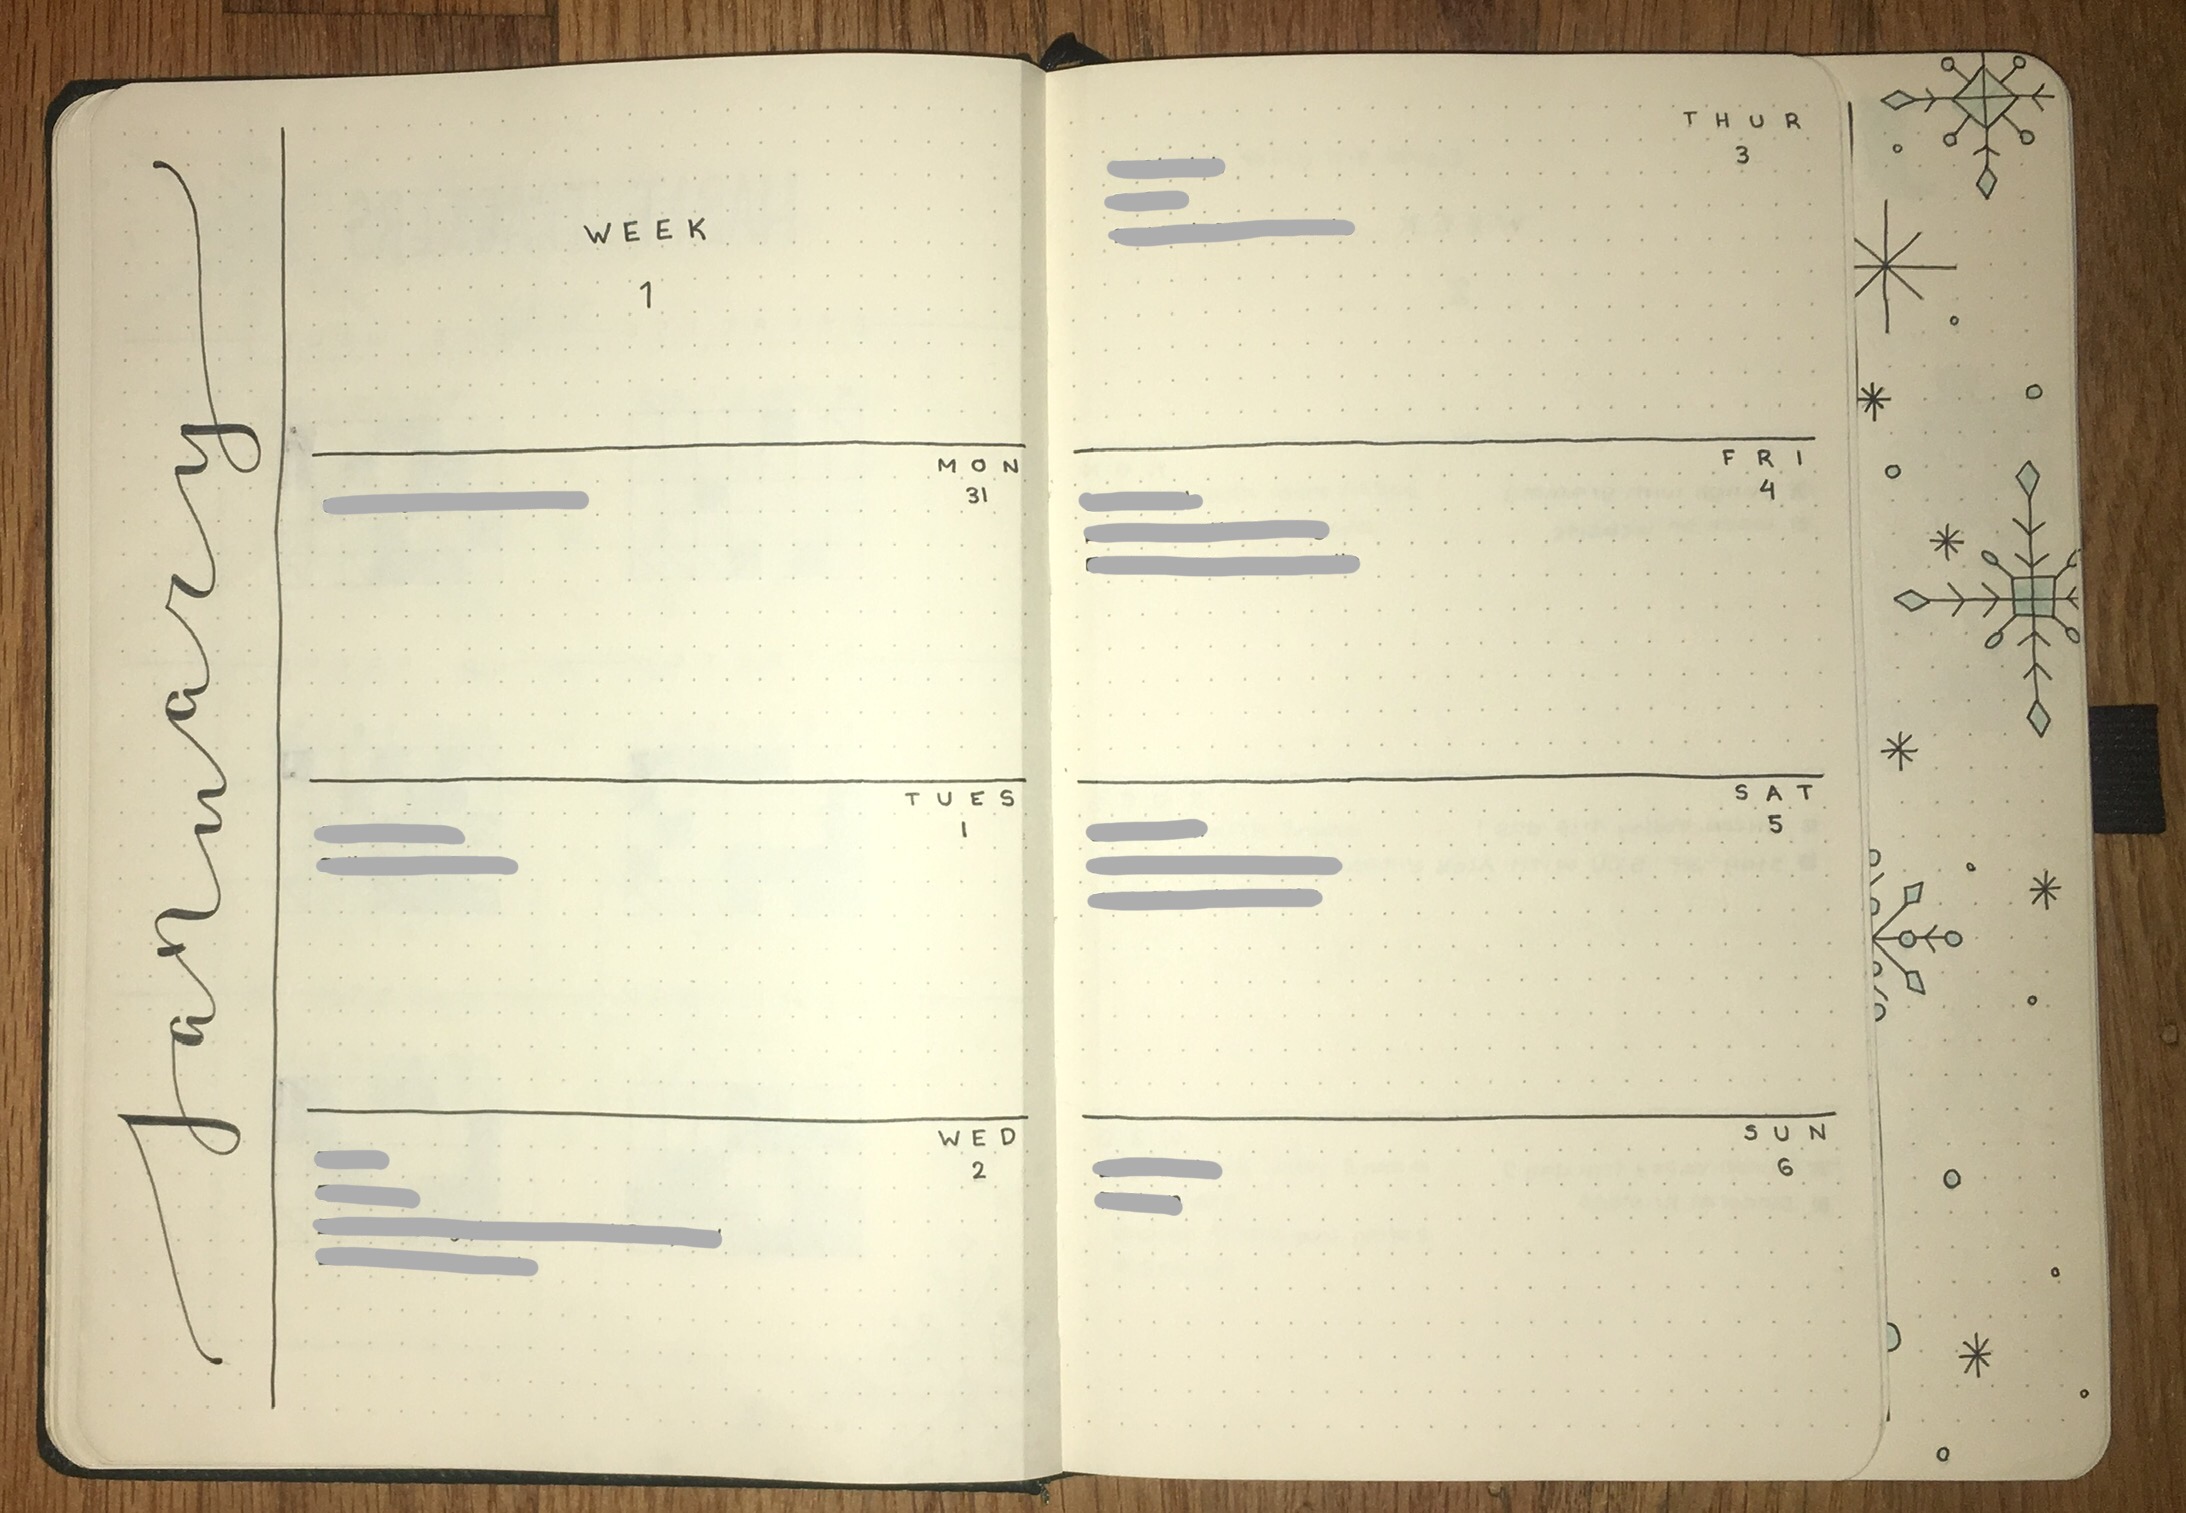 January
WEEK
1
MON
31
TUES
1
WED
2
THUR
3
FRI
4
SAT
5
SUN
6